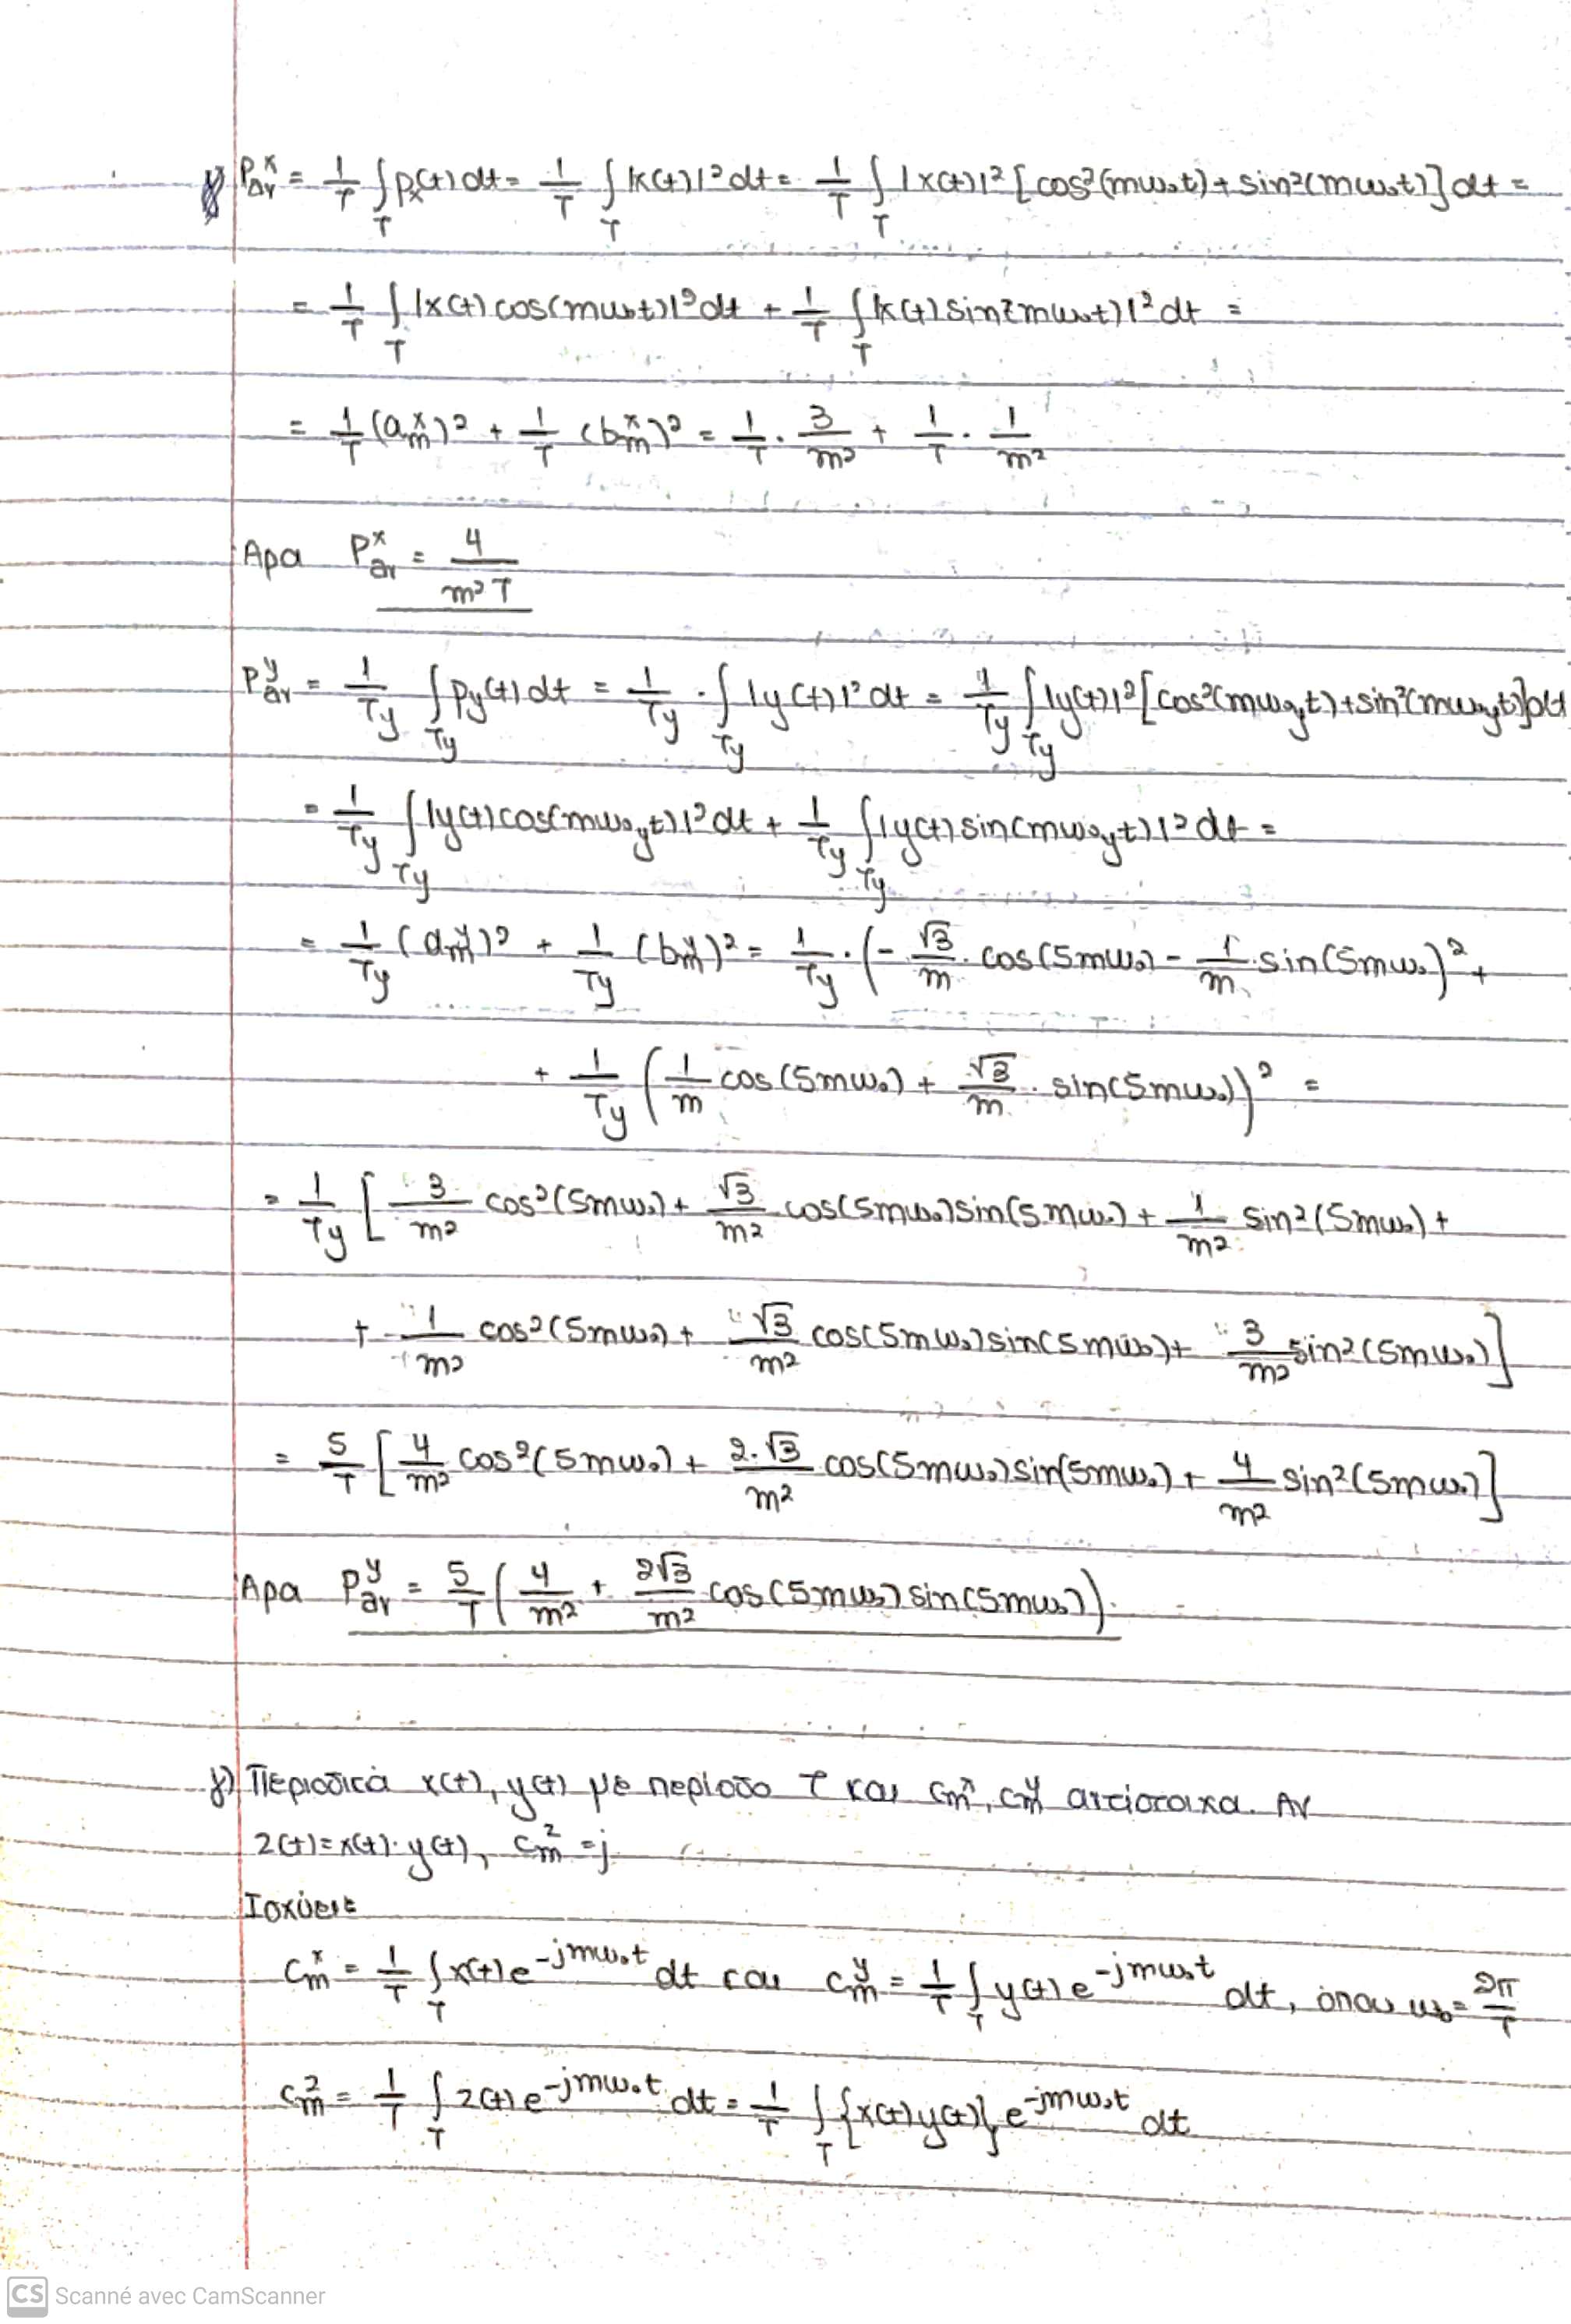 P_av^x = 1/T ∫_T p_x(t) dt = 1/T ∫_T |x(t)|² dt = 1/T ∫_T |x(t)|² [cos²(mω₀t) + sin²(mω₀t)] dt =
= 1/T ∫_T |x(t) cos(mω₀t)|² dt + 1/T ∫_T |x(t) sin(mω₀t)|² dt =
= 1/T (a_m^x)² + 1/T (b_m^x)² = 1/T · 3/m² + 1/T · 1/m²
Άρα P_av^x = 4/(m²T)
P_av^y = 1/Ty ∫_Ty p_y(t) dt = 1/Ty · ∫_Ty |y(t)|² dt = 1/Ty ∫_Ty |y(t)|² [cos²(mω₀yt) + sin²(mω₀yt)] dt
= 1/Ty ∫_Ty |y(t) cos(mω₀yt)|² dt + 1/Ty ∫_Ty |y(t) sin(mω₀yt)|² dt =
= 1/Ty (a_m^y)² + 1/Ty (b_m^y)² = 1/Ty · (- √3/m · cos(5mω₀) - 1/m · sin(5mω₀))² +
+ 1/Ty (1/m cos(5mω₀) + √3/m · sin(5mω₀))² =
= 1/Ty [3/m² cos²(5mω₀) + √3/m² cos(5mω₀) sin(5mω₀) + 1/m² sin²(5mω₀) +
+ 1/m² cos²(5mω₀) + √3/m² cos(5mω₀) sin(5mω₀) + 3/m² sin²(5mω₀)]
= 5/T [4/m² cos²(5mω₀) + 2·√3/m² cos(5mω₀) sin(5mω₀) + 4/m² sin²(5mω₀)]
Άρα P_av^y = 5/T (4/m² + 2√3/m² cos(5mω₀) sin(5mω₀)).
γ) Περιοδικά x(t), y(t) με περίοδο T και c_m^x, c_m^y αντίστοιχα. Αν
z(t) = x(t)·y(t), c_m^z = ;
Ισχύει:
c_m^x = 1/T ∫_T x(t) e^{-jmω₀t} dt και c_m^y = 1/T ∫_T y(t) e^{-jmω₀t} dt, όπου ω₀ = 2π/T
c_m^z = 1/T ∫_T z(t) e^{-jmω₀t} dt = 1/T ∫_T {x(t) y(t)} e^{-jmω₀t} dt
CS Scanné avec CamScanner